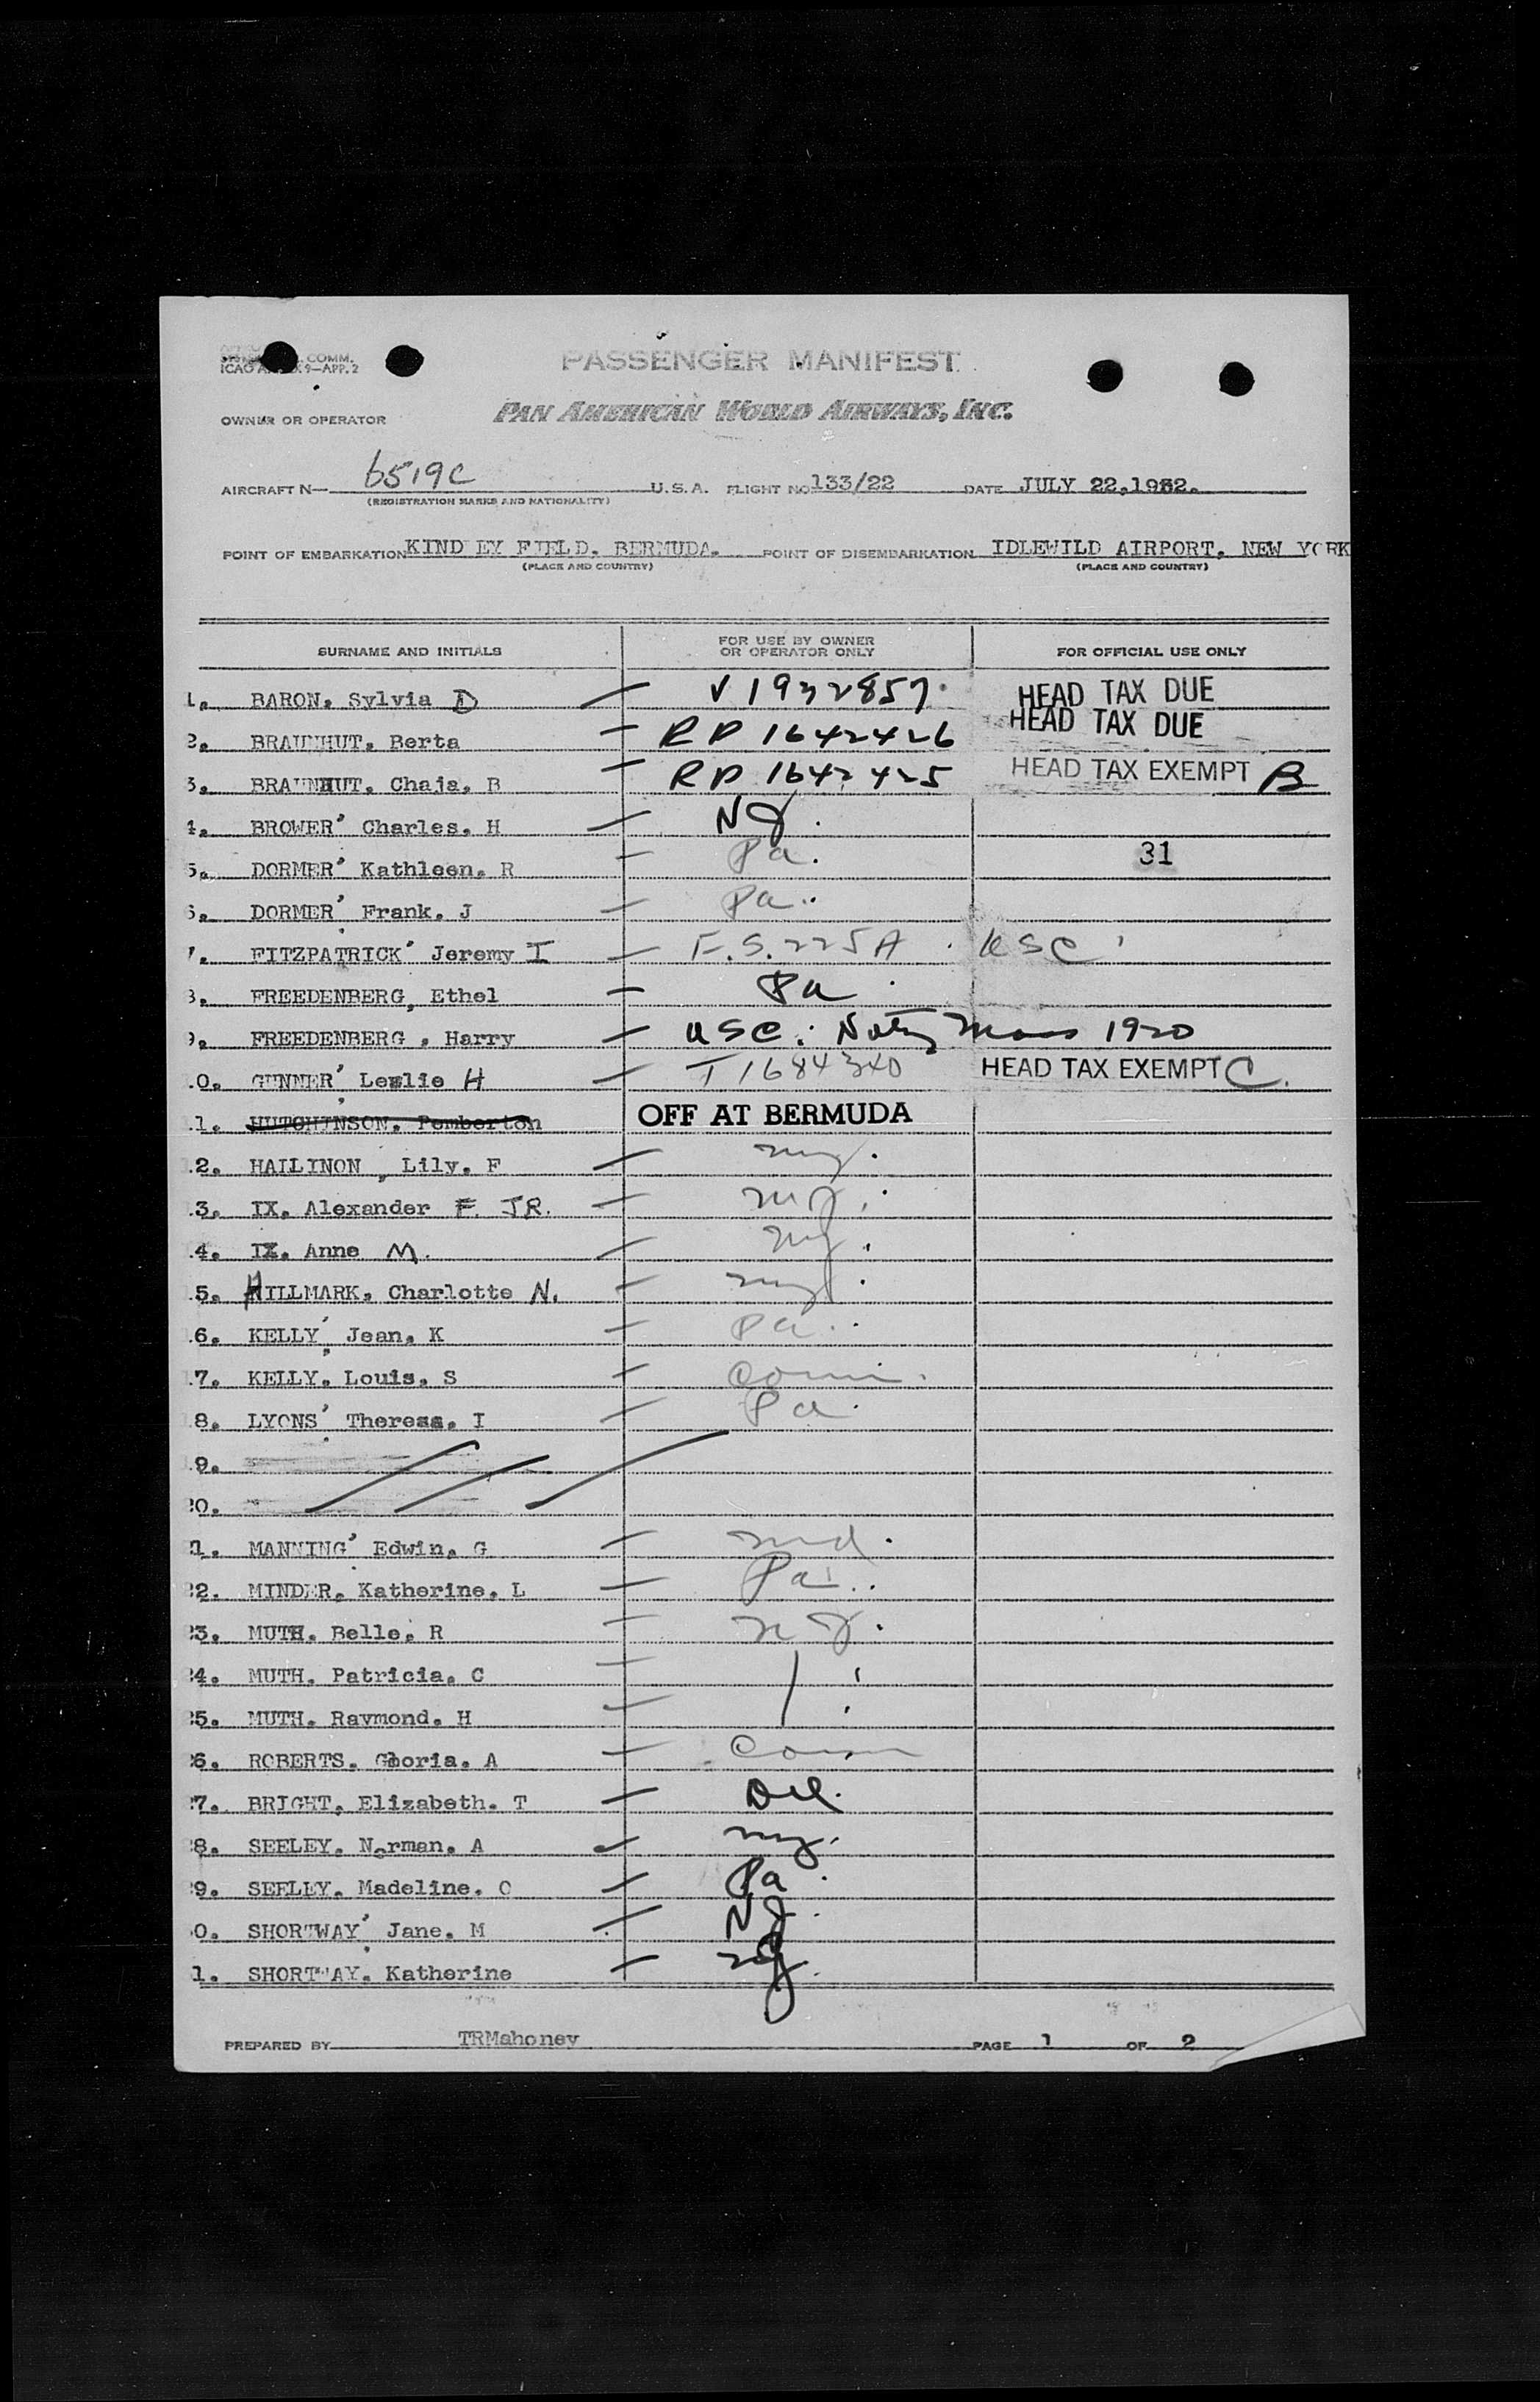 COMM.
ICAO A 9—APP. 2
PASSENGER MANIFEST
OWNER OR OPERATOR PAN AMERICAN WORLD AIRWAYS, INC.
AIRCRAFT N— 6519C U.S.A. FLIGHT NO. 133/22 DATE JULY 22,1952.
(REGISTRATION MARKS AND NATIONALITY)
POINT OF EMBARKATION KINDLEY FIELD. BERMUDA. POINT OF DISEMBARKATION IDLEWILD AIRPORT. NEW YORK
(PLACE AND COUNTRY) (PLACE AND COUNTRY)
SURNAME AND INITIALS FOR USE BY OWNER OR OPERATOR ONLY FOR OFFICIAL USE ONLY
1. BARON. Sylvia D — V 1932857. HEAD TAX DUE
2. BRAUNHUT. Berta — RP 1642426 HEAD TAX DUE
3. BRAUNHUT. Chaja. B — RP 1642425 HEAD TAX EXEMPT B
4. BROWER' Charles. H — NJ.
5. DORMER' Kathleen. R — Pa. 31
6. DORMER' Frank. J — Pa.
7. FITZPATRICK' Jeremy I — F.S. 225A USC
8. FREEDENBERG, Ethel — Pa.
9. FREEDENBERG, Harry — USC. Natz Mass 1920
10. GUNNER' Leslie H — T1684340 HEAD TAX EXEMPT C.
11. HUTCHINSON. Pemberton OFF AT BERMUDA
12. HALLINON, Lily. F — NY.
13. IX. Alexander F. JR. — NJ.
14. IX. Anne M. — NJ.
15. HILLMARK. Charlotte N. — NY.
16. KELLY' Jean. K — Pa.
17. KELLY. Louis. S — Conn.
18. LYONS' Theresa. I — Pa.
19.
20.
21. MANNING' Edwin. G — Md.
22. MINDER. Katherine. L — Pa.
23. MUTH. Belle. R — NJ.
24. MUTH. Patricia. C —
25. MUTH. Raymond. H —
26. ROBERTS. Gloria. A — Conn
27. BRIGHT. Elizabeth. T — Del.
28. SEELEY. Norman. A — NY.
29. SEELEY. Madeline. C — Pa.
30. SHORTWAY' Jane. M — NJ.
31. SHORTWAY. Katherine — NJ.
PREPARED BY TRMahoney PAGE 1 OF 2